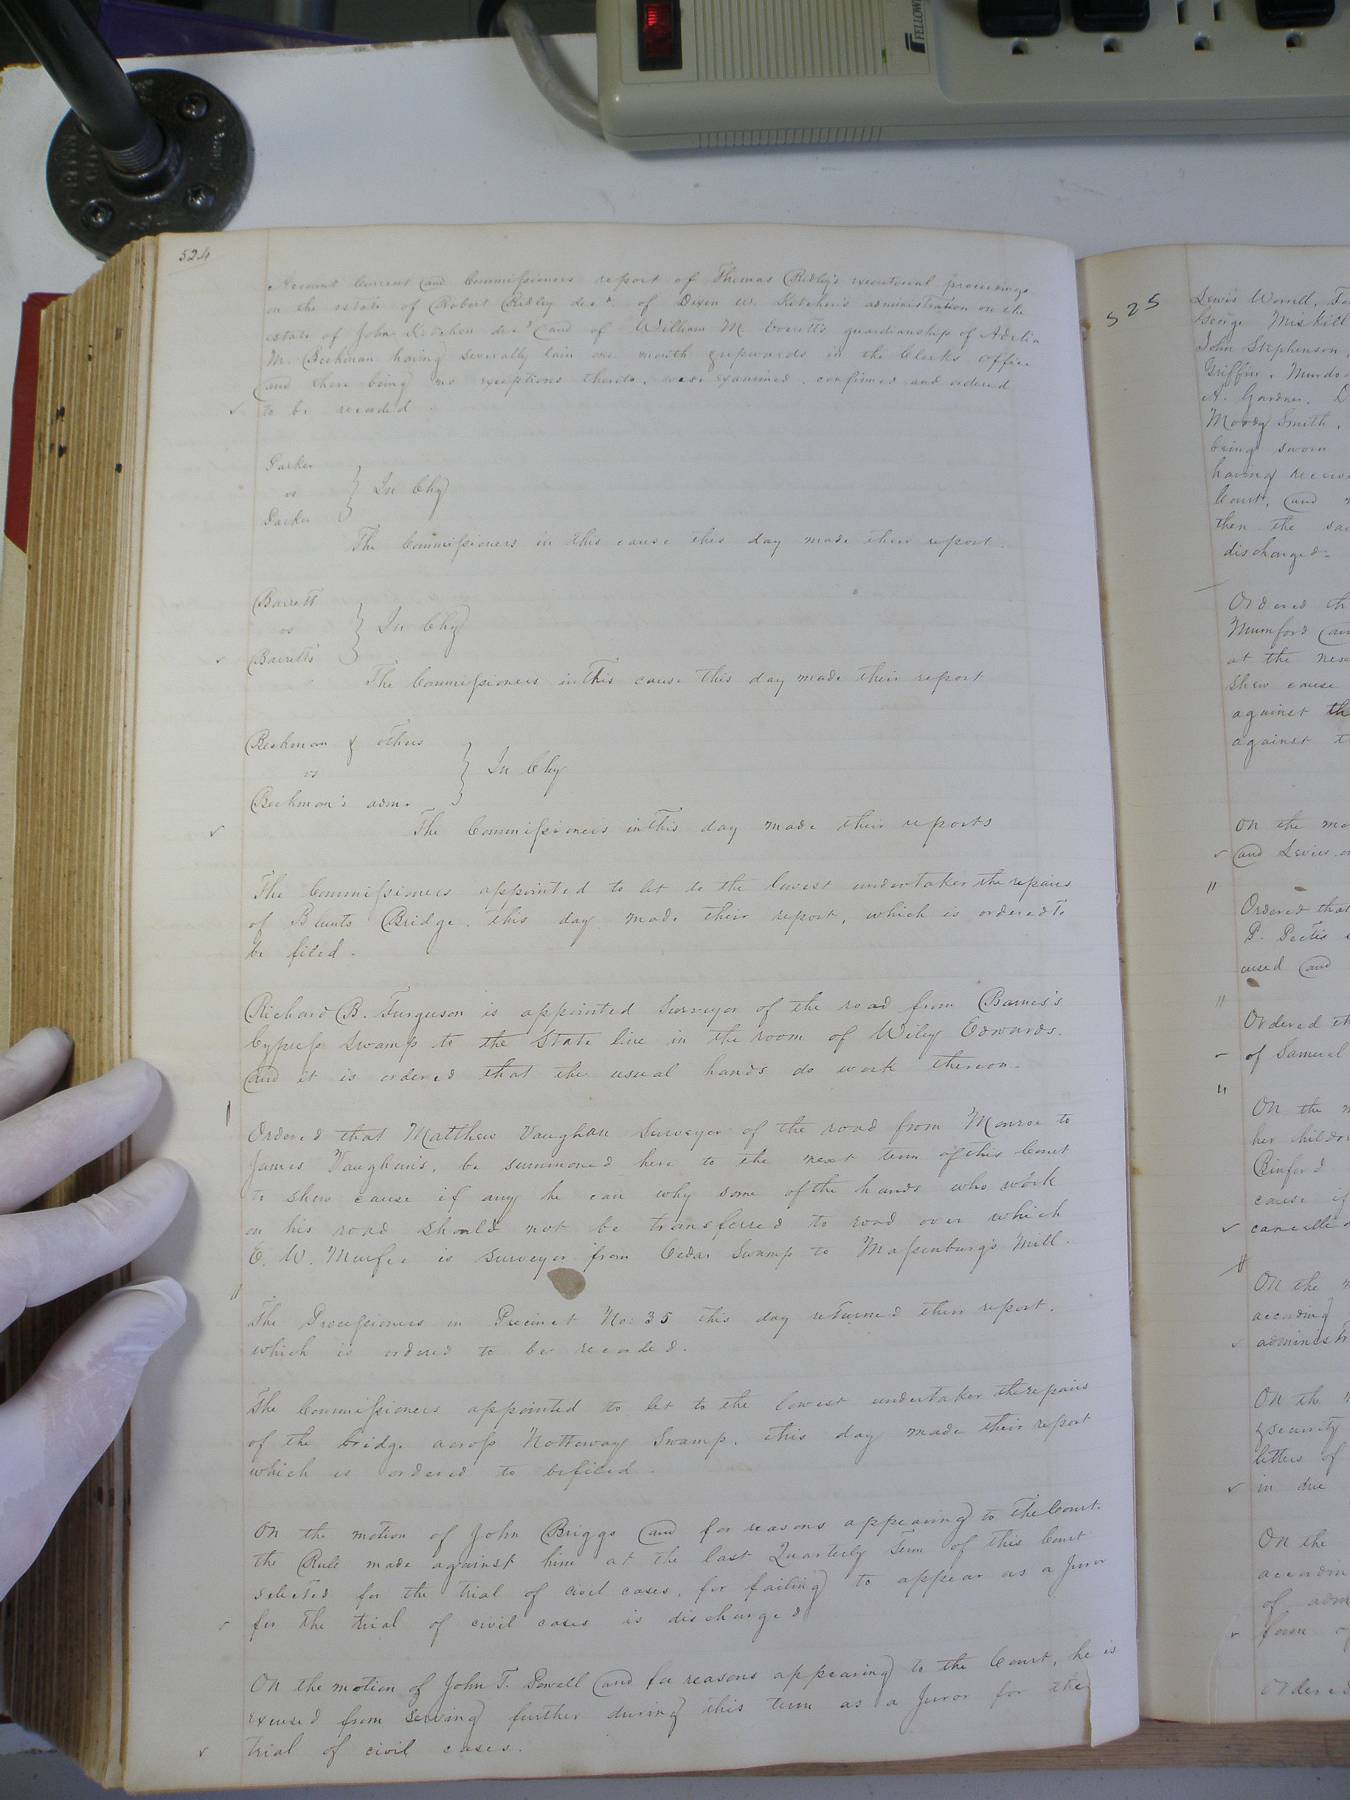 524
Account Current and Commissioners report of Thomas Ridley's executorial proceedings
on the estate of Robert Ridley decd. of Dixon W. Kitchen's administration on the
estate of John Kitchen decd and of William M. Everett's guardianship of Adelia
M. Beekman having severally lain one month & upwards in the Clerks office
and there being no exceptions thereto, were examined, confirmed and ordered
to be recorded.
Parker
vs
Parker
In Chy
The Commissioners in this cause this day made their report.
Barrett
vs
Barretts
In Chy
The Commissioners in this cause this day made their report
Beekman & others
vs
Beekman's adm.
In Chy
The Commissioners in this day made their reports
The Commissioners appointed to let to the lowest undertaker the repairs
of Blunts Bridge, this day made their report, which is ordered to
be filed.
Richard B. Furguson is appointed Surveyor of the road from Barnes's
Cypress Swamp to the State line in the room of Wiley Edwards.
and it is ordered that the usual hands do work thereon.
Ordered that Matthew Vaughan Surveyor of the road from Monroe to
James Vaughan's, be summoned here to the next term of this Court
to shew cause if any he can why some of the hands who work
on his road should not be transferred to road over which
E. W. Murfee is surveyor from Cedar Swamp to Massenburg's Mill.
The Processioners in Precinct No: 35 this day returned their report,
which is ordered to be recorded.
The Commissioners appointed to let to the lowest undertaker the repairs
of the bridge across Nottoway Swamp, this day made their report
which is ordered to be filed.
On the motion of John Briggs and for reasons appearing to the Court.
the Rule made against him at the last Quarterly Term of this Court
selected for the trial of civil cases, for failing to appear as a Juror
for the trial of civil cases is discharged
On the motion of John T. Sewell and for reasons appearing to the Court, he is
excused from serving further during this term as a Juror for the
trial of civil cases.
525
Lewis Worrell,
George Miskill
John Stephenson,
Griffin,
A. Gardner,
Moody Smith,
being sworn
having
Court, and
then the
discharged.
Ordered
Mumford
at the
shew cause
against
against
On the
and Levies
Ordered that
P.
used and
Ordered
of Samuel
On the
her
Binford
cause if
On the
according
On the
& security
letters of
in due
On the
of
form of
Ordered
FELLOW